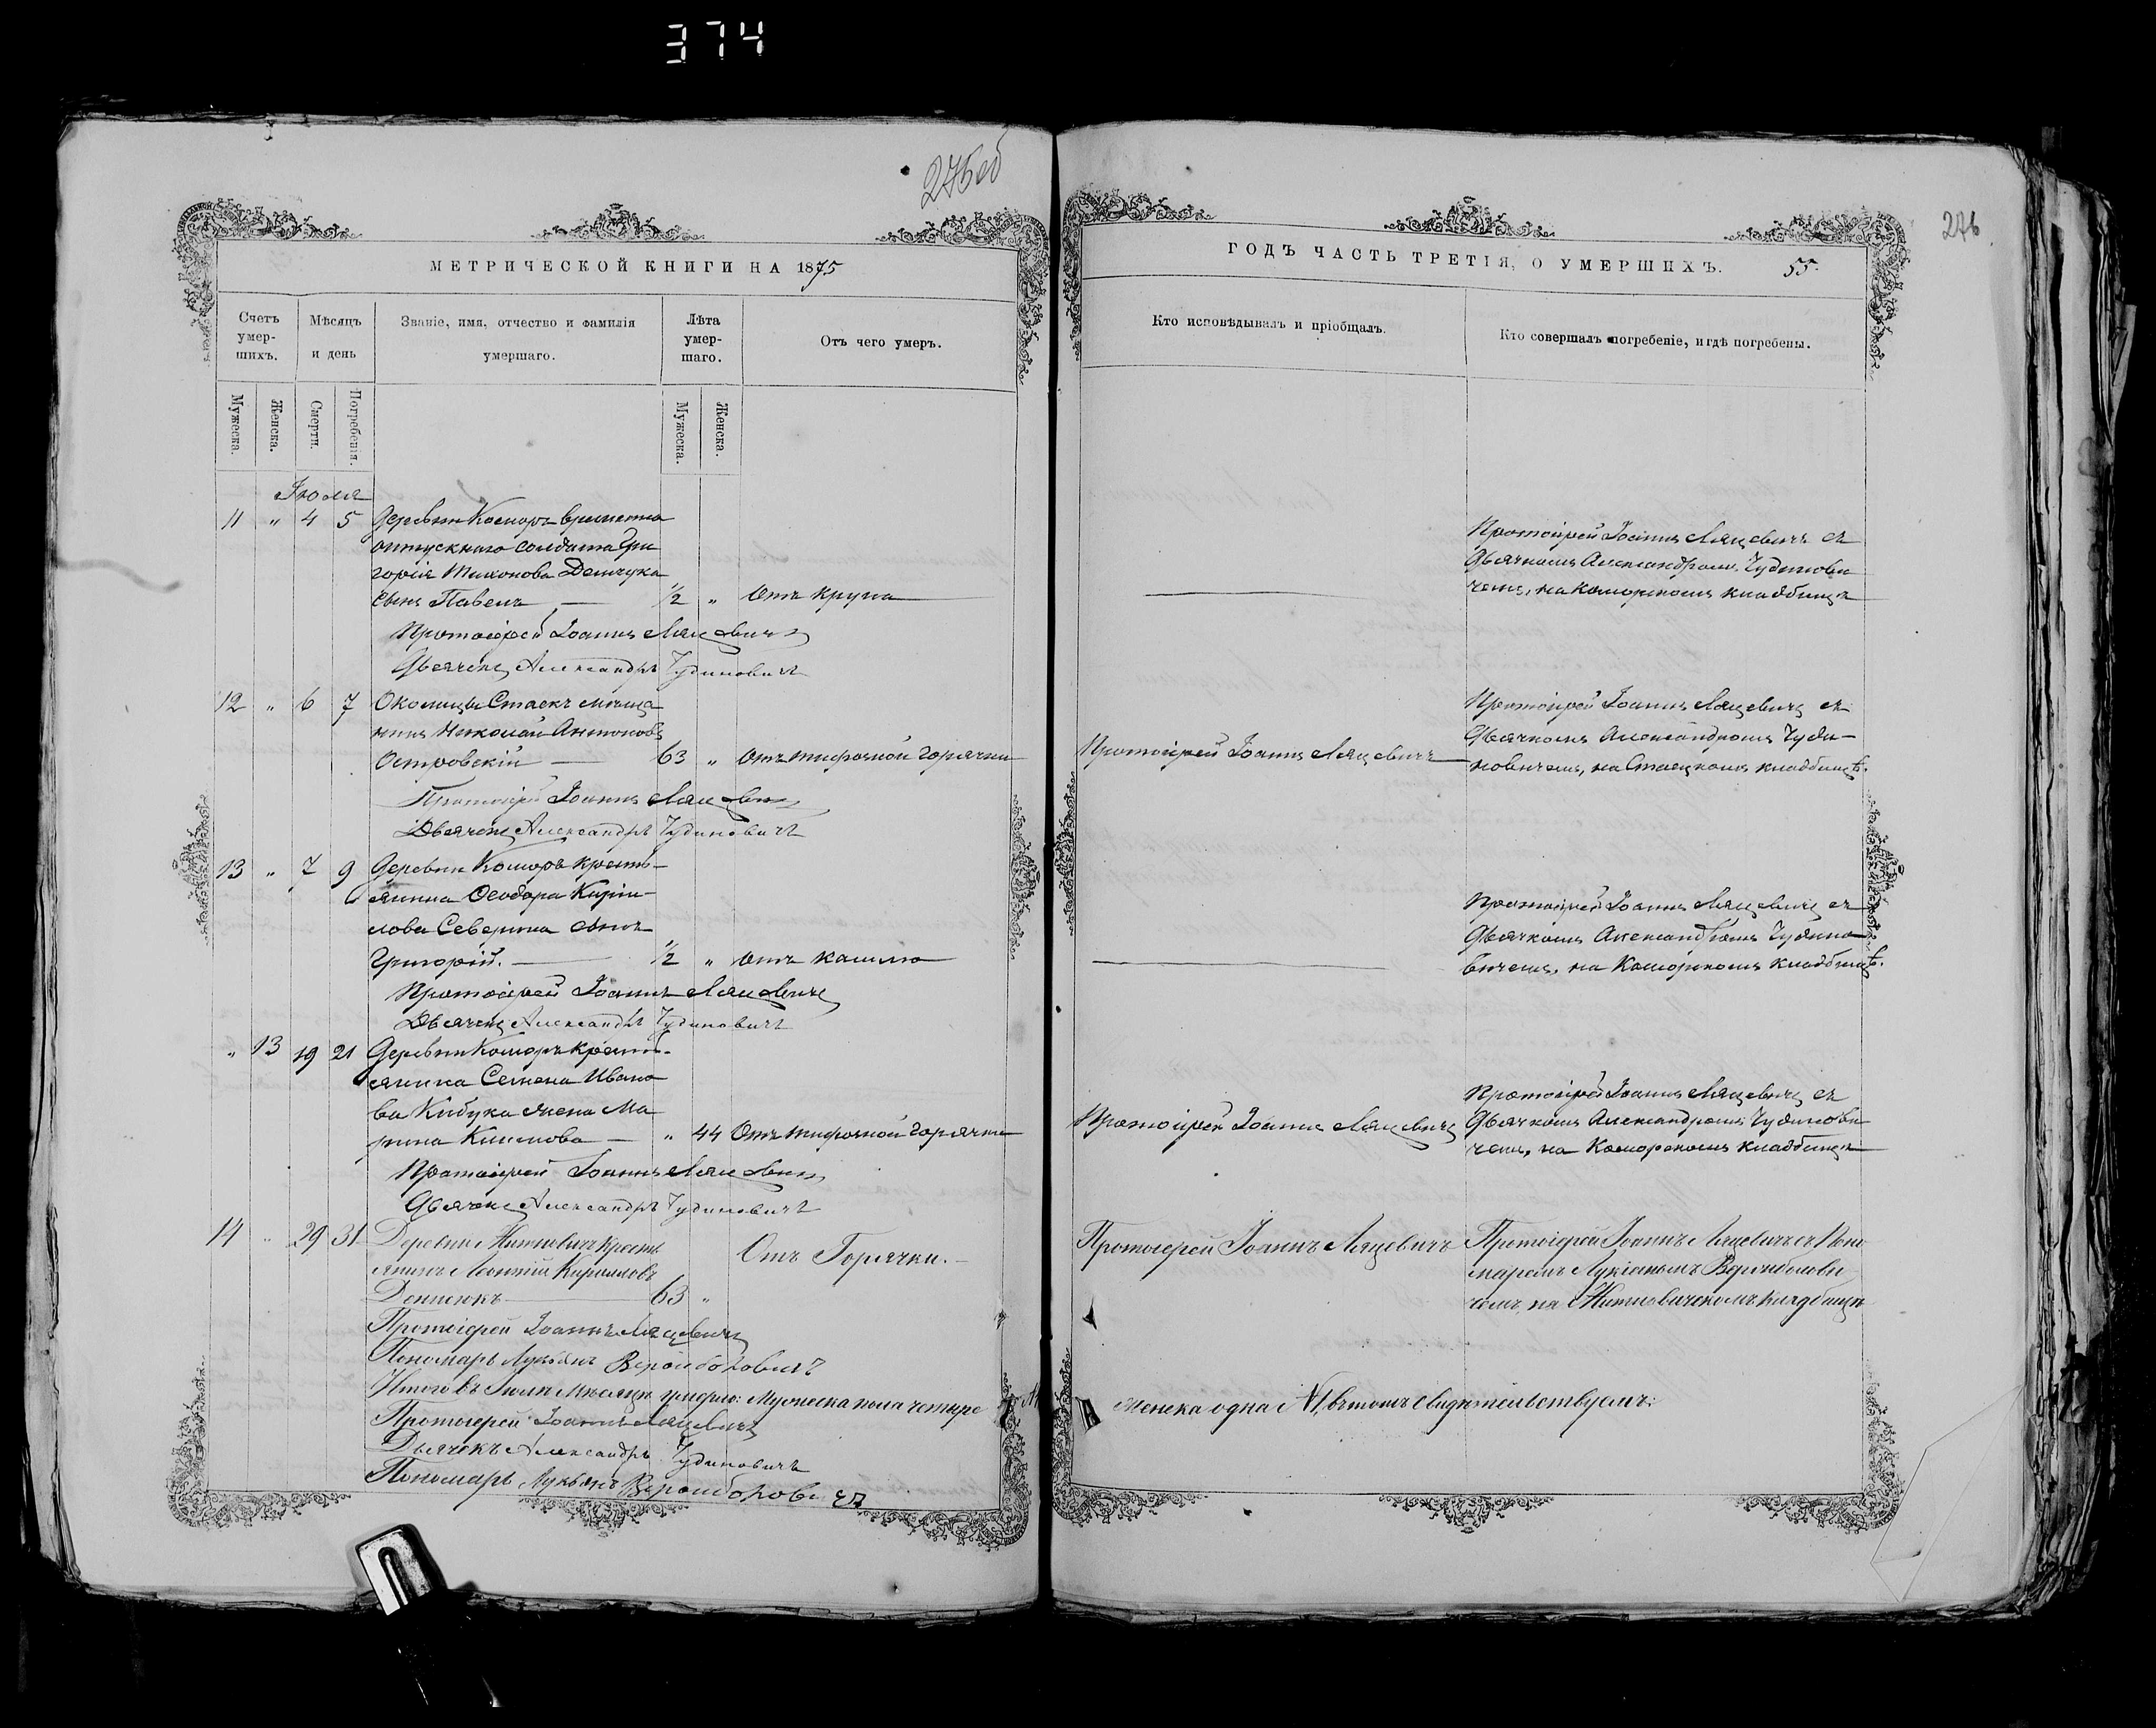 374
276об
МЕТРИЧЕСКОЙ КНИГИ НА 1875
Счетъ умер-шихъ.
Мѣсяцъ и день
Званіе, имя, отчество и фамилія умершаго.
Лѣта умер-шаго.
Отъ чего умеръ.
Мужеска.
Женска.
Смерти.
Погребенія.
Мужеска.
Женска.
Іюля
11 " 4 5 Деревни Коморъ временно
отпускнаго солдата Гри
горія Тихонова Демчука
сынъ Павелъ — 1/2 " Отъ крупа
Протоіерей Іоаннъ Ляцевичъ
Дьячекъ Александръ Чудиновичъ
12 " 6 7 Околицы Стаекъ мѣща
нинъ Николай Антоновъ
Островскій — 63 " Отъ тифозной горячки
Протоіерей Іоаннъ Ляцевичъ
Дьячекъ Александръ Чудиновичъ
13 " 7 9 Деревни Коморъ кресть-
янина Ѳеодора Кирил-
лова Северина сынъ
Григорій. — 1/2 " Отъ кашлю
Протоіерей Іоаннъ Ляцевичъ
Дьячекъ Александръ Чудиновичъ
" 13 19 21 Деревни Коморъ кресть-
янина Семена Ивано
ва жена Ма
рина — " 44 Отъ тифозной горячки
Протоіерей Іоаннъ Ляцевичъ
Дьячекъ Александръ Чудиновичъ
14 " 29 31 Деревни Житновичъ кресть
янинъ Леонтій Кирилловъ
Денисюкъ — 63 " Отъ Горячки. —
Протоіерей Іоаннъ Ляцевичъ
Пономарь Лукьянъ
Итого въ Іюлѣ мѣсяцѣ умерло: Мужеска пола четыре
Протоіерей Іоаннъ Ляцевичъ
Дьячекъ Александръ Чудиновичъ
Пономарь Лукьянъ
276
ГОДЪ ЧАСТЬ ТРЕТІЯ, О УМЕРШИХЪ. 55.
Кто исповѣдывалъ и пріобщалъ.
Кто совершалъ погребеніе, и гдѣ погребены.
Протоіерей Іоаннъ Ляцевичъ съ
Дьячкомъ Александромъ Чудинови
чемъ, на Коморскомъ кладбищѣ
Протоіерей Іоаннъ Ляцевичъ
Протоіерей Іоаннъ Ляцевичъ съ
Дьячкомъ Александромъ Чуди-
новичемъ, на Стаецкомъ кладбищѣ.
Протоіерей Іоаннъ Ляцевичъ съ
Дьячкомъ Александромъ Чудино
вичемъ, на Коморскомъ кладбищѣ.
Протоіерей Іоаннъ Ляцевичъ
Протоіерей Іоаннъ Ляцевичъ съ
Дьячкомъ Александромъ Чудинови
чемъ, на Коморскомъ кладбищѣ
Протоіерей Іоаннъ Ляцевичъ
Протоіерей Іоаннъ Ляцевичъ съ Поно
маремъ Лукіаномъ
чемъ, на Житновичскомъ кладбищѣ
Женска одна въ томъ свидѣтельствуемъ: